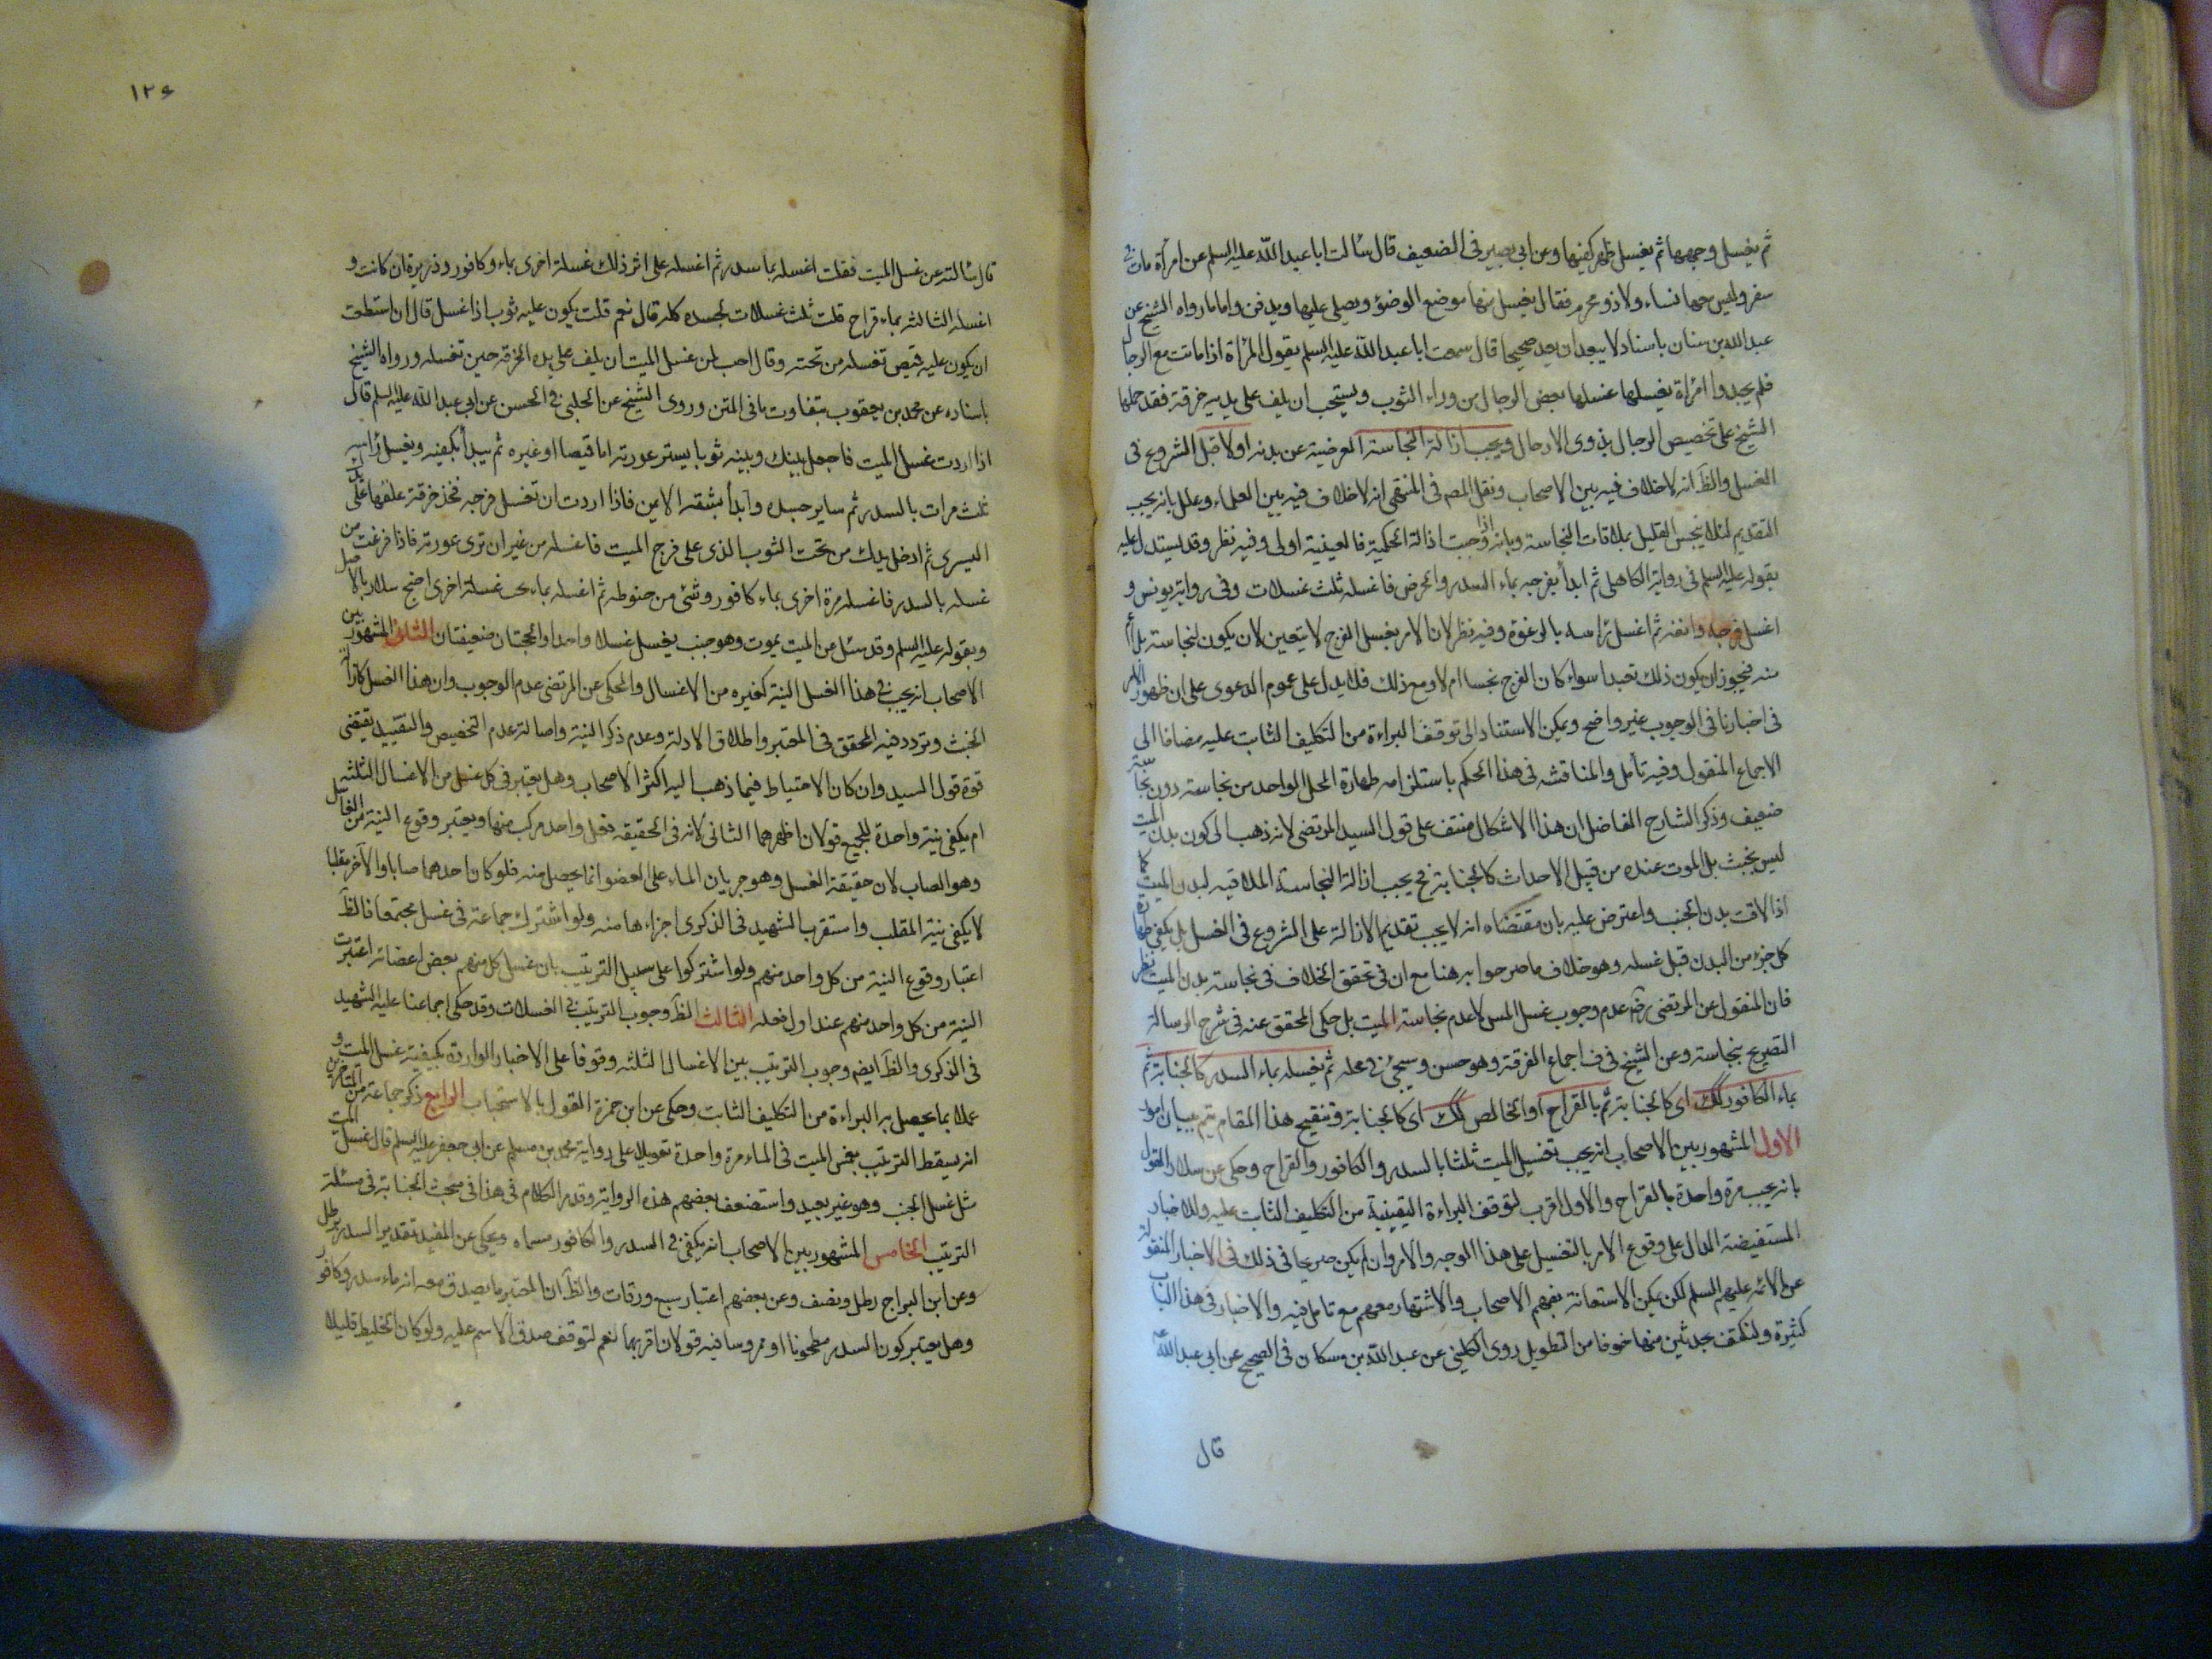 ثم يغسل وجهها ثم يغسل ظهر كفيها وعن ابي بصير في الضعيف قال سالت ابا عبد الله عليه السلم عن امرأة ماتت في
سفر وليس معها نساء ولا ذو محرم فقال يغسل منها موضع الوضوء ويصلى عليها ويدفن واما ما رواه الشيخ عن
عبد الله بن سنان باسناد لا يبعد ان يعد صحيحا قال سمعت ابا عبد الله عليه السلم يقول المرأة اذا ماتت مع الرجال
فلم يجدوا امرأة يغسلها غسلها بعض الرجال من وراء الثوب ويستحب ان يلف على يديه خرقة فقد حملها
الشيخ على تخصيص الرجال بذوى الارحال ويجب ازالة النجاسة العرضية عن بدنه اولا قبل الشروع فى
الغسل والظ انه لا خلاف فيه بين الاصحاب ونقل المصه فى المنتهى انه لا خلاف فيه بين العلماء وعلل بانه يجب
التقديم لئلا ينجس القليل بملاقات النجاسة وبانه اذا وجبت ازالة الحكمية فالعينية اولى وفيه نظر وقد يستدل عليه
بقوله عليه السلم فى رواية الكاهلى ثم ابدأ بفرجه بماء السدر والحرض فاغسله ثلث غسلات وفى رواية يونس و
اغسل فرجه وانقه ثم اغسل رأسه بالرغوة وفيه نظر لان الامر بغسل الفرج لا يتعين لان يكون لنجاسة بدأ
منه فيجوز ان يكون ذلك تعبدا سواء كان الفرج نجسا ام لا ومع ذلك فلا يدل على عموم الدعوى على ان ظهور الامر
فى اخبارنا فى الوجوب غير واضح ويمكن الاستناد الى توقف البراءة من التكليف الثابت عليه مضافا الى
الاجماع المنقول وفيه تأمل والمناقشه فى هذا الحكم باستلزامه طهارة المحل الواحد من نجاسة دون نجاسة
ضعيف وذكر الشارح الفاضل ان هذا الاشكال منتف على قول السيد المرتضى لانه ذهب الى كون بدن الميت
ليس بخبث بل الموت عنده من قبيل الاحداث كالجنابة فح يجب ازالة النجاسة الملاقيه لبدن الميت كما
اذا لاقت بدن الجنب واعترض عليه بان مقتضاه انه لا يجب تقديم الازالة على الشروع فى الغسل بل يكفى طهارة
كل جزء من البدن قبل غسله وهو خلاف ما صرحوا به هنا مع ان فى تحقق الخلاف فى نجاسة بدن الميت نظر
فان المنقول عن المرتضى ره عدم وجوب غسل المس لا عدم نجاسة الميت بل حكى المحقق عنه فى شرح الرسالة
التصريح بنجاسته وعن الشيخ فى ف اجماع الفرقة وهو حسن وسيجئ فى محله ثم يغسله بماء السدر كالجنابة ثم
بماء الكافور كك اى كالجنابة ثم بالقراح اى الخالص كك اى كالجنابة وتنقيح هذا المقام يتم ببيان امور
الاول المشهور بين الاصحاب انه يجب تغسيل الميت ثلثا بالسدر والكافور والقراح وحكى عن سلار القول
بانه يجب مرة واحدة بالقراح والاول اقرب لتوقف البراءة اليقينية من التكليف الثابت عليه وللاخبار
المستفيضة الدال على وقوع الامر بالتغسيل على هذا الوجه والامر وان لم يكن صريحا فى ذلك فى الاخبار المنقولة
عن الائمه عليهم السلم لكن يمكن الاستعانة بفهم الاصحاب والاشتهار معهم مع تامل فيه والاخبار فى هذا الباب
كثيرة ولنكتف بحدثين منها خوفا من التطويل روى الكلينى عن عبد الله بن مسكان فى الصحيح عن ابى عبد الله عم
قال
١٢٤
قال سالته عن غسل الميت فقلت اغسله بماء سدر ثم اغسله على اثر ذلك غسلة اخرى بماء وكافور وذريرة ان كانت و
اغسله الثالثة بماء قراح قلت ثلث غسلات لجسده كله قال نعم قلت يكون عليه ثوب اذا غسل قال ان استطعت
ان يكون عليه قميص تغسله من تحته وقال احب لمن غسل الميت ان يلف على يده الخرقة حين تغسله ورواه الشيخ
باسناده عن محمد بن يعقوب بتفاوت ما فى المتن وروى الشيخ عن الحلبى فى الحسن عن ابى عبد الله عليه السلم قال
اذا اردت غسل الميت فاجعل بينك وبينه ثوبا يستر عورته اما قميصا او غيره ثم تبدأ بكفيه ويغسل رأسه
ثلث مرات بالسدر ثم ساير جسده وابدأ بشقه الايمن فاذا اردت ان تغسل فرجه فخذ خرقة فلفها على يدك
اليسرى ثم ادخل يدك من تحت الثوب الذى على فرج الميت فاغسله من غير ان ترى عورته فاذا فرغت من
غسله بالسدر فاغسله مرة اخرى بماء كافور وشئ من حنوطه ثم اغسله بماء بحت غسلة اخرى احتج سلار بالاصل
وبقوله عليه السلم وقد سئل عن الميت يموت وهو جنب يغسل غسلا واحدا والحجتان ضعيفتان الثانى المشهور بين
الاصحاب انه يجب فى هذا الغسل النية كغيره من الاغسال والمحكى عن المرتضى عدم الوجوب وان هذا الغسل كازالة
الخبث وتردد فيه المحقق فى المعتبر واطلاق الادلة وعدم ذكر النية واصالة عدم التخصيص والتقييد يقتضى
قوة قول السيد وان كان الاحتياط فيما ذهب اليه اكثر الاصحاب وهل يعتبر فى كل غسل من الاغسال الثلثه
ام يكفى نية واحدة للجميع قولان اظهرهما الثانى لانه فى الحقيقة فعل واحد مركب منها ويعتبر وقوع النية من الغاسل
وهو الصاب لان حقيقة الغسل وهو جريان الماء على العضو انما يحصل منه فلو كان احدهما صابا والآخر مقلبا
لا يكفى نية المقلب واستقرب الشهيد فى الذكرى اجزاءها منه ولو اشترك جماعة فى غسل مجتمعا فالظ
اعتبار وقوع النية من كل واحد منهم ولو اشتركوا على سبيل الترتيب بان غسل كل منهم بعض اعضائه اعتبرت
النية من كل واحد منهم عند اول فعله الثالث الظ وجوب الترتيب فى الغسلات وقد حكى اجماعنا عليه الشهيد
فى الذكرى والظ ايضه وجوب الترتيب بين الاغسال الثلثه وقوفا على الاخبار الواردة بكيفية غسل الميت و
عملا بما يحصل به البراءة من التكليف الثابت وحكى عن ابن حمزة القول بالاستحباب الرابع ذكر جماعة من المتاخرين
انه يسقط الترتيب بغمس الميت فى الماء مرة واحدة تعويلا على رواية محمد بن مسلم عن ابى جعفر عليه السلم قال غسل الميت
مثل غسل الجنب وهو غير بعيد واستضعف بعضهم هذه الرواية وقد مر الكلام فى هذا فى مبحث الجنابة فى مسئلة
الترتيب الخامس المشهور بين الاصحاب انه يكفى فى السدر والكافور مسماه ويحكى عن المفيد تقدير السدر برطل
وعن ابن البراج رطل ونصف وعن بعضهم اعتبار سبع ورقات والظ ان المعتبر ما يصدق معه انه ماء سدر وكافور
وهل يعتبر كون السدر مطحونا او ممروسا فيه قولان اقربهما نعم لتوقف صدق الاسم عليه ولو كان الخليط قليلا